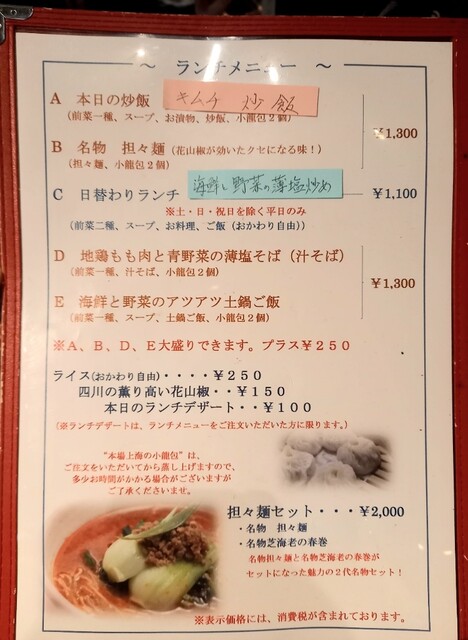 ～ ランチメニュー ～
A 本日の炒飯 キムチ 炒飯
(前菜一種、スープ、お漬物、炒飯、小龍包2個)
¥1,300
B 名物 担々麺(花山椒が効いたクセになる味!)
(担々麺、小龍包2個)
C 日替わりランチ 海鮮と野菜の薄塩炒め ¥1,100
※土・日・祝日を除く平日のみ
(前菜二種、スープ、お料理、ご飯(おかわり自由))
D 地鶏もも肉と青野菜の薄塩そば(汁そば)
(前菜一種、汁そば、小龍包2個)
¥1,300
E 海鮮と野菜のアツアツ土鍋ご飯
(前菜一種、スープ、土鍋ご飯、小龍包2個)
※A、B、D、E大盛りできます。プラス¥250
ライス(おかわり自由)・・・・¥250
四川の薫り高い花山椒・・¥150
本日のランチデザート・・¥100
(※ランチデザートは、ランチメニューをご注文いただいた方に限ります。)
“本場上海の小龍包”は、
ご注文をいただいてから蒸し上げますので、
多少お時間がかかる場合がございますが
ご了承くださいませ。
担々麺セット・・・¥2,000
・名物 担々麺
・名物芝海老の春巻
名物担々麺と名物芝海老の春巻が
セットになった魅力の2代名物セット!
※表示価格には、消費税が含まれております。